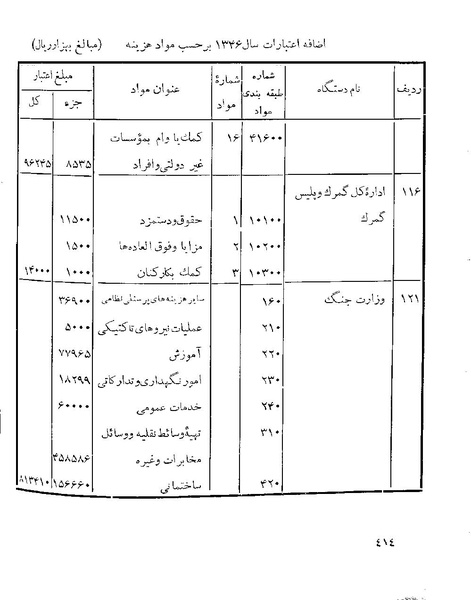 اضافه اعتبارات سال ۱۳۴۶ برحسب مواد هزینه (مبالغ بهزارریال)
ردیف نام دستگاه شماره طبقه بندی مواد شمارهٔ مواد عنوان مواد مبلغ اعتبار جزء کل
۴۱۶۰۰ ۱۶ کمک یا وام بمؤسسات
غیر دولتی وافراد ۸۵۳۵ ۹۶۲۴۵
۱۱۶ ادارهٔ کل گمرک وپلیس
گمرک ۱۰۱۰۰ ۱ حقوق ودستمزد ۱۱۵۰۰
۱۰۲۰۰ ۲ مزایا وفوق العاده‌ها ۱۵۰۰
۱۰۳۰۰ ۳ کمک بکارکنان ۱۰۰۰ ۱۴۰۰۰
۱۲۱ وزارت جنگ ۱۶۰ سایر هزینه‌های پرسنلی نظامی ۳۶۹۰۰
۲۱۰ عملیات نیروهای تاکتیکی ۵۰۰۰
۲۲۰ آموزش ۷۷۹۶۵
۲۳۰ امور نگهداری و تدارکاتی ۱۸۲۹۹
۲۴۰ خدمات عمومی ۶۰۰۰۰
۳۱۰ تهیهٔ وسائط نقلیه و وسائل
مخابرات وغیره ۴۵۸۵۸۶
۴۲۰ ساختمانی ۱۵۶۶۶۰ ۸۱۳۴۱۰
۴۱۴